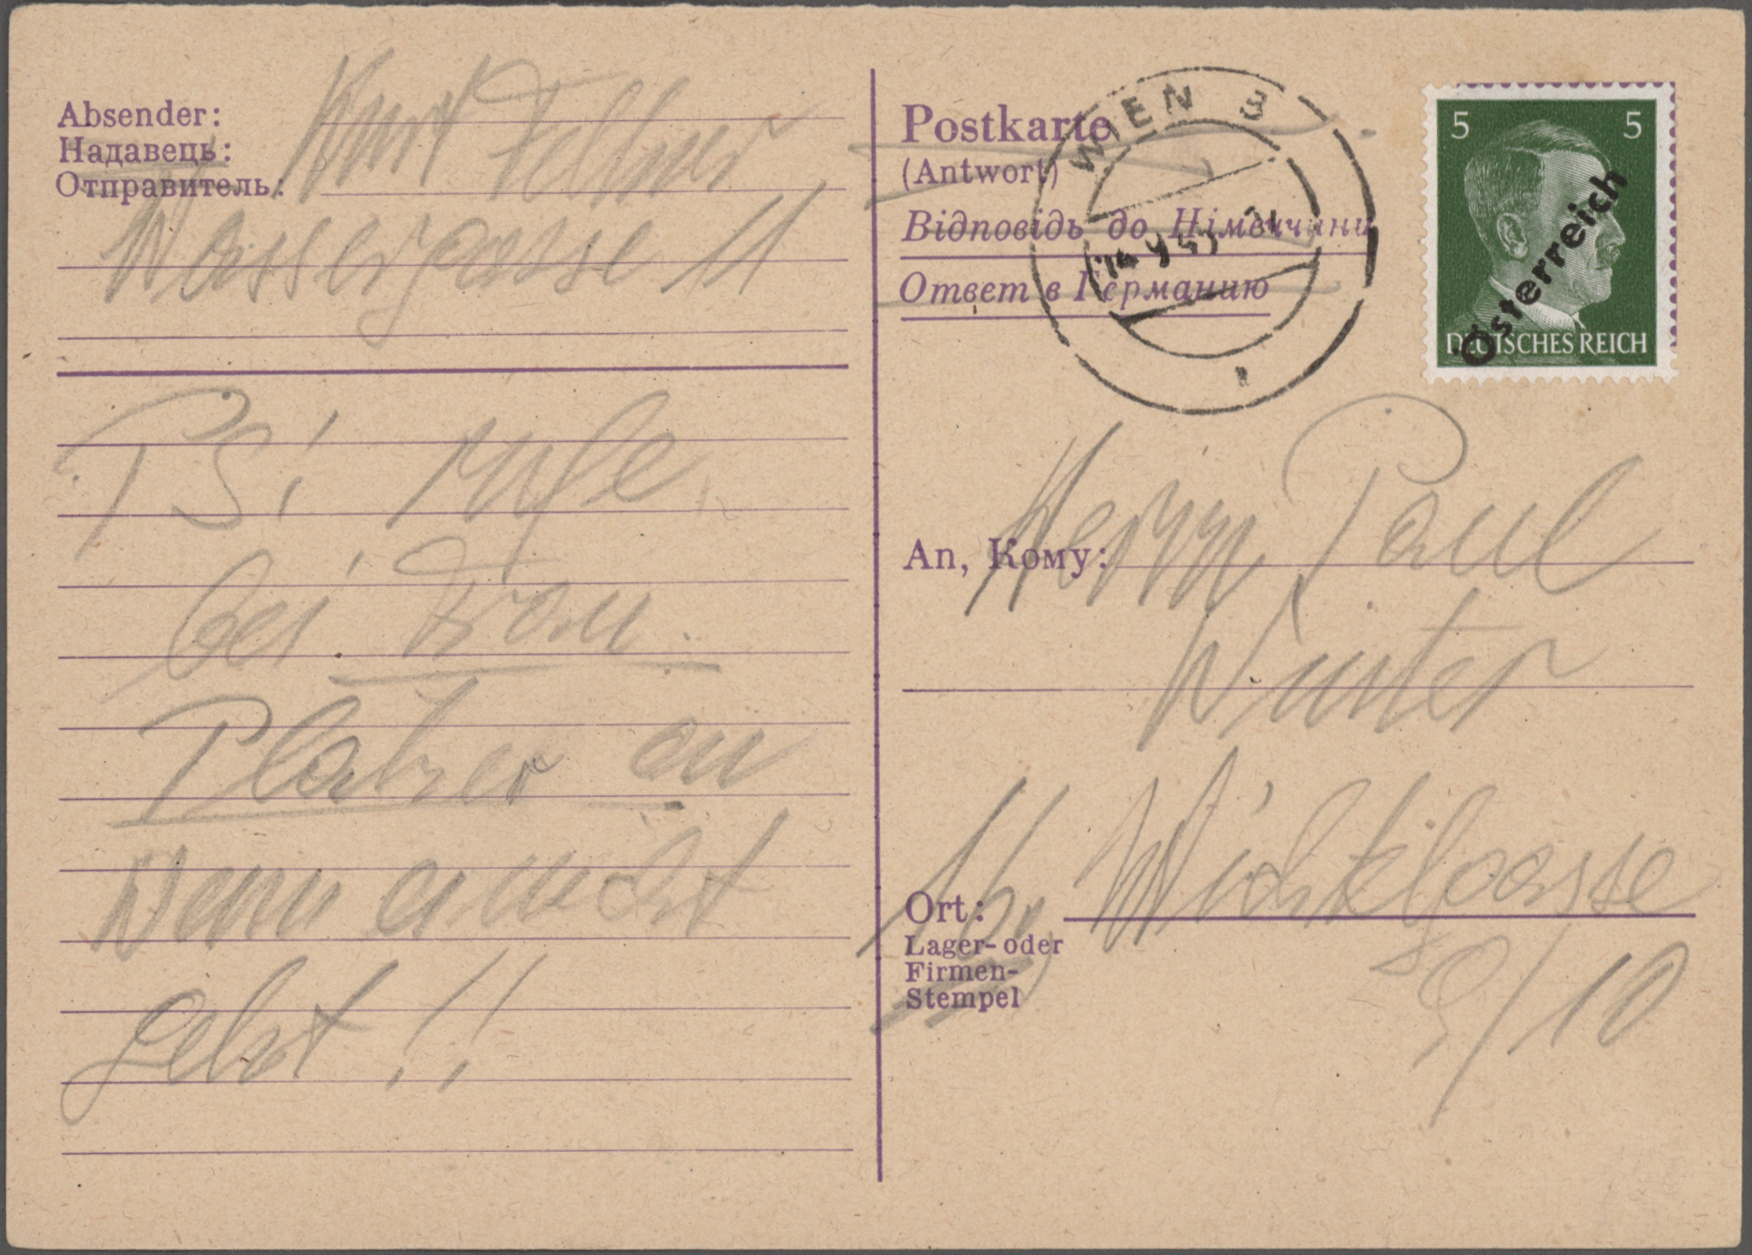 Absender:
Надавець:
Отправитель:
Kurt Fellner
Wassergasse 11
PS! rufe
bei Frau
Platzer an
Wenn es nicht
geht!!
Postkarte
(Antwort)
Відповідь до Німеччини
Ответ в Германию
WIEN 3
5 5
DEUTSCHES REICH
Österreich
An, Кому:
Herrn Paul
Winter
Ort:
16,
Lager- oder
Firmen-
Stempel
9/10